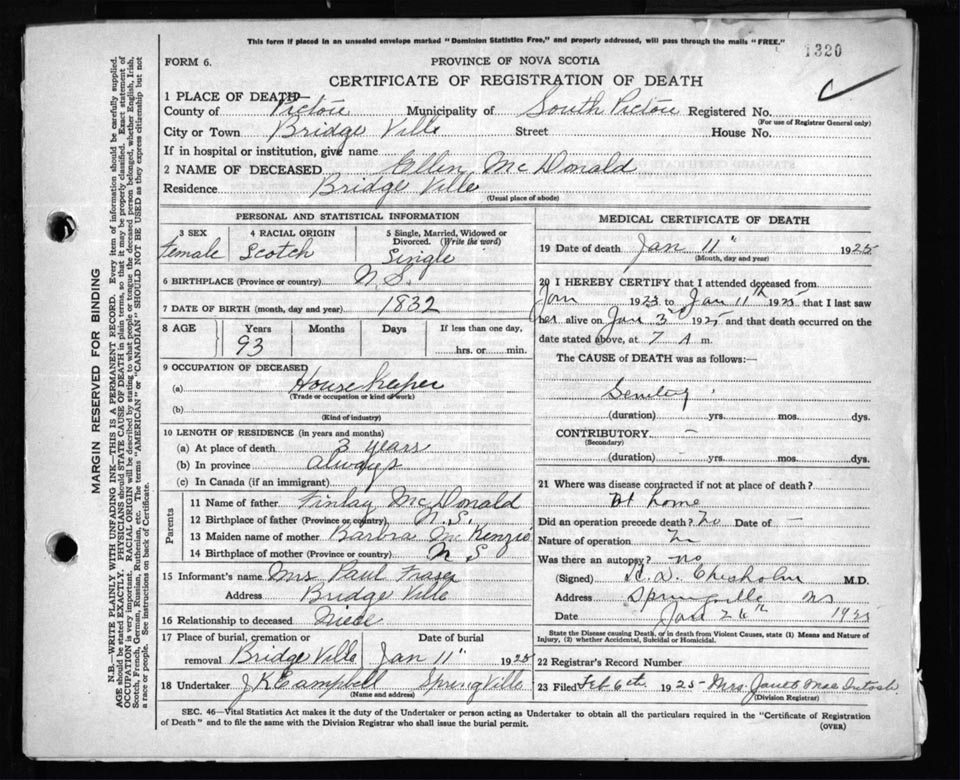 This form if placed in an unsealed envelope marked "Dominion Statistics Free," and properly addressed, will pass through the mails "FREE."
1320
FORM 6.
PROVINCE OF NOVA SCOTIA
CERTIFICATE OF REGISTRATION OF DEATH
1 PLACE OF DEATH
County of Pictou Municipality of South Pictou Registered No.
(For use of Registrar General only)
City or Town Bridge Ville Street House No.
If in hospital or institution, give name
2 NAME OF DECEASED Ellen McDonald
Residence Bridge Ville
(Usual place of abode)
PERSONAL AND STATISTICAL INFORMATION
3 SEX 4 RACIAL ORIGIN 5 Single, Married, Widowed or Divorced. (Write the word)
Female Scotch Single
6 BIRTHPLACE (Province or country) N.S.
7 DATE OF BIRTH (month, day and year) 1832
8 AGE Years Months Days If less than one day,
93 hrs. or min.
9 OCCUPATION OF DECEASED
(a) House Keeper
(Trade or occupation or kind of work)
(b)
(Kind of industry)
10 LENGTH OF RESIDENCE (in years and months)
(a) At place of death 3 years
(b) In province always
(c) In Canada (if an immigrant)
Parents
11 Name of father Finlay McDonald
12 Birthplace of father (Province or country) N.S.
13 Maiden name of mother Barbra McKenzie
14 Birthplace of mother (Province or country) N S
15 Informant's name Mrs Paul Fraser
Address Bridge Ville
16 Relationship to deceased Niece
17 Place of burial, cremation or removal Date of burial
Bridge Ville Jan 11" 1925
18 Undertaker J K Campbell SpringVille
(Name and address)
MEDICAL CERTIFICATE OF DEATH
19 Date of death Jan 11" 1925
(Month, day and year)
20 I HEREBY CERTIFY that I attended deceased from
Jan 1923 to Jan 11th 1925 that I last saw
her alive on Jan 3rd 1925 and that death occurred on the
date stated above, at 7 A m.
The CAUSE of DEATH was as follows:—
(duration) yrs. mos. dys.
CONTRIBUTORY —
(Secondary)
(duration) yrs. mos. dys.
21 Where was disease contracted if not at place of death?
At home
Did an operation precede death? No Date of —
Nature of operation
Was there an autopsy? no
(Signed) Chisholm M.D.
Address Springville NS
Date Jan 26th 1925
State the Disease causing Death, or in death from Violent Causes, state (1) Means and Nature of
Injury, (2) whether Accidental, Suicidal or Homicidal.
22 Registrar's Record Number
23 Filed Feb 6th 1925 Mrs. Janet MacIntosh
(Division Registrar)
SEC. 46—Vital Statistics Act makes it the duty of the Undertaker or person acting as Undertaker to obtain all the particulars required in the "Certificate of Registration
of Death" and to file the same with the Division Registrar who shall issue the burial permit.
(OVER)
MARGIN RESERVED FOR BINDING
N.B.—WRITE PLAINLY WITH UNFADING INK—THIS IS A PERMANENT RECORD. Every item of information should be carefully supplied.
AGE should be stated EXACTLY. PHYSICIANS should STATE CAUSE OF DEATH in plain terms, so that it may be properly classified. Exact statement of
OCCUPATION is very important. RACIAL ORIGIN will be described by stating to what people or tongue the deceased person belonged, whether English, Irish,
Scotch, French, German, Russian, Ruthenian, etc. The terms "AMERICAN" or "CANADIAN" SHOULD NOT BE USED as they express citizenship but not
a race or people. See instructions on back of Certificate.